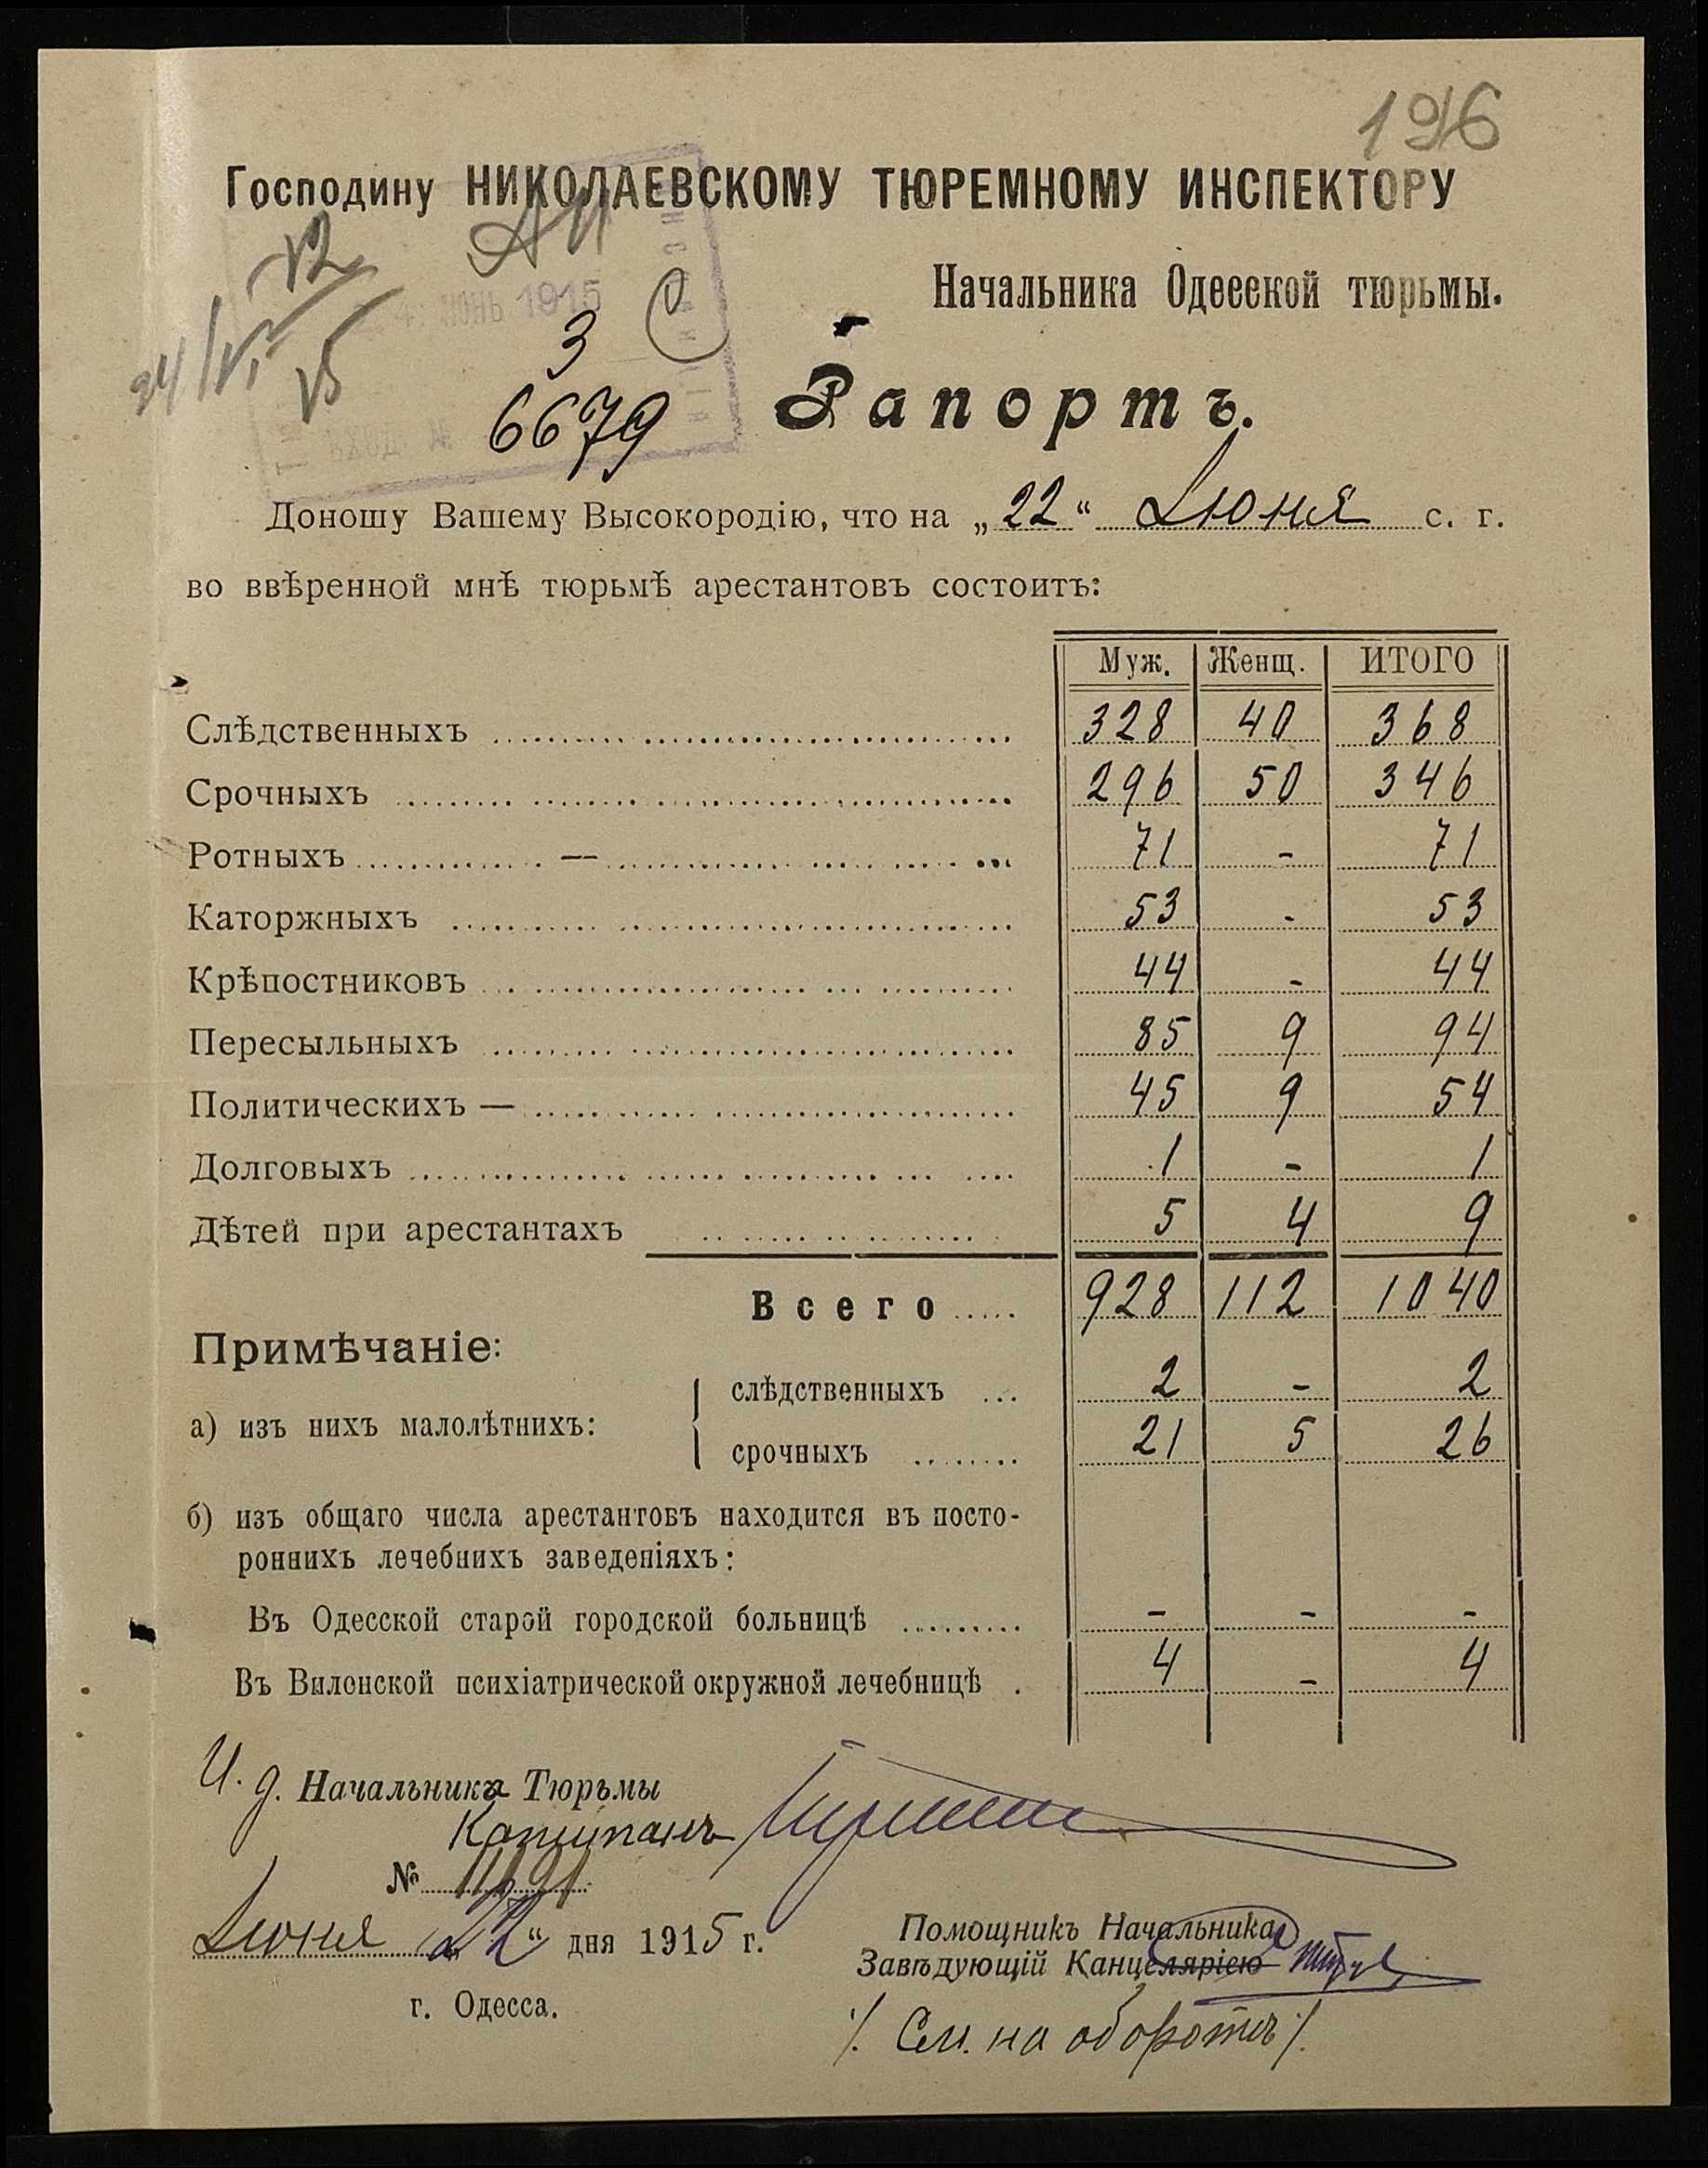 196
Господину НИКОЛАЕВСКОМУ ТЮРЕМНОМУ ИНСПЕКТОРУ
Начальника Одесской тюрьмы.
24/VI 15
ІЮНЬ 1915
3
ВХОД. №
6679
Рапортъ.
Доношу Вашему Высокородію, что на „22“ Іюня с. г.
во ввѣренной мнѣ тюрьмѣ арестантовъ состоитъ:
Муж. Женщ. ИТОГО
Слѣдственныхъ 328 40 368
Срочныхъ 296 50 346
Ротныхъ — 71 - 71
Каторжныхъ 53 - 53
Крѣпостниковъ 44 - 44
Пересыльныхъ 85 9 94
Политическихъ — 45 9 54
Долговыхъ 1 - 1
Дѣтей при арестантахъ 5 4 9
Всего 928 112 1040
Примѣчаніе:
слѣдственныхъ 2 - 2
а) изъ нихъ малолѣтнихъ:
срочныхъ 21 5 26
б) изъ общаго числа арестантовъ находится въ посто-
роннихъ лечебнихъ заведеніяхъ:
Въ Одесской старой городской больницѣ - - -
Въ Виленской психіатрической окружной лечебницѣ 4 - 4
И. д. Начальника Тюрьмы
Капитанъ
№ 11191
Іюня „22“ дня 1915 г.
Помощникъ Начальника
Завѣдующій Канцеляріею
г. Одесса.
/. См. на оборотѣ /.